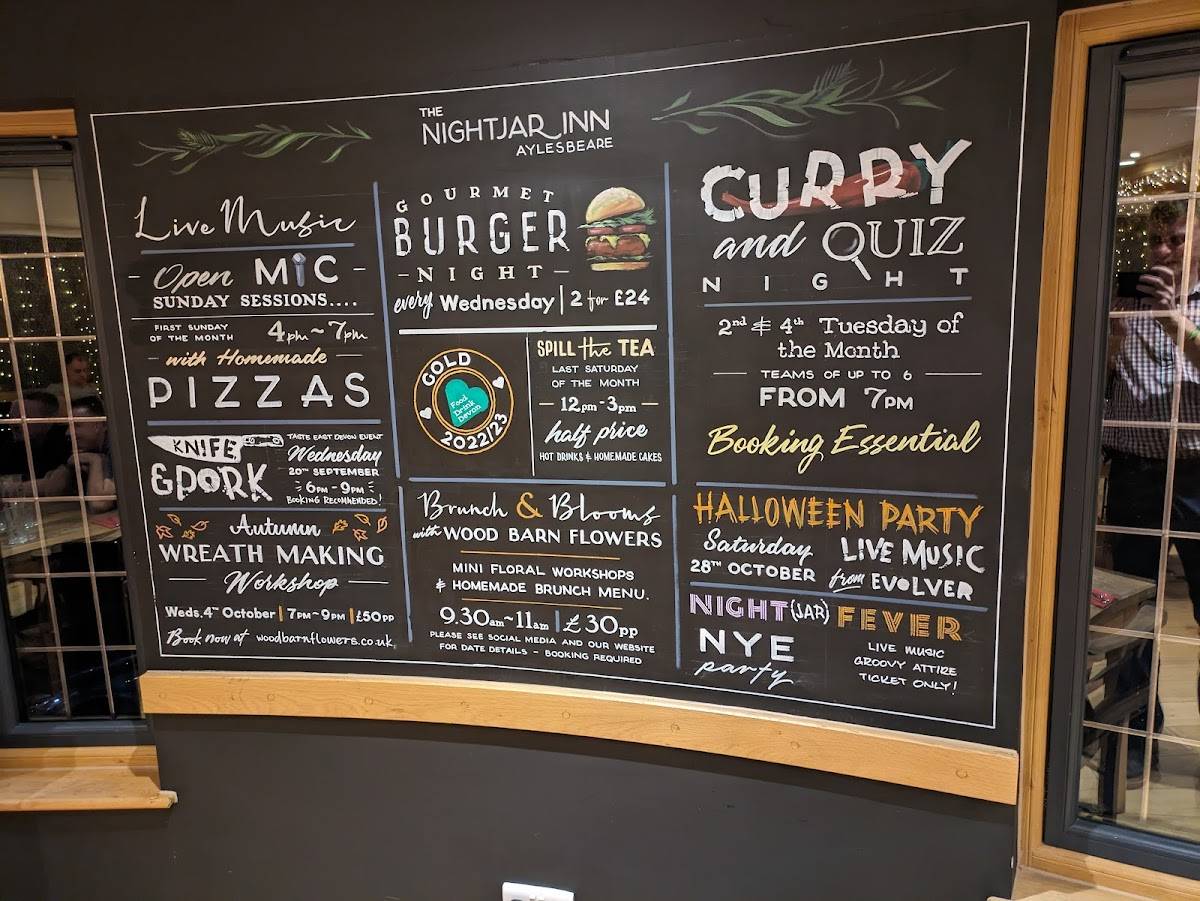 THE
NIGHTJAR INN
AYLESBEARE
Live Music
Open MIC
SUNDAY SESSIONS....
FIRST SUNDAY
OF THE MONTH
4pm~7pm
with Homemade
PIZZAS
KNIFE
& PORK
TASTE EAST DEVON EVENT
Wednesday
20TH SEPTEMBER
6PM - 9PM
BOOKING RECOMMENDED!
Autumn
WREATH MAKING
Workshop
Weds. 4th October | 7pm~9pm | £50pp
Book now at woodbarnflowers.co.uk
GOURMET
BURGER
- NIGHT -
every Wednesday | 2 for £24
GOLD
Food
Drink
Devon
2022/23
SPILL the TEA
LAST SATURDAY
OF THE MONTH
12pm-3pm
half price
HOT DRINKS & HOMEMADE CAKES
Brunch & Blooms
with WOOD BARN FLOWERS
MINI FLORAL WORKSHOPS
& HOMEMADE BRUNCH MENU.
9.30am~11am | £30pp
PLEASE SEE SOCIAL MEDIA AND OUR WEBSITE
FOR DATE DETAILS - BOOKING REQUIRED
CURRY
and QUIZ
NIGHT
2nd & 4th Tuesday of
the Month
TEAMS OF UP TO 6
FROM 7PM
Booking Essential
HALLOWEEN PARTY
Saturday
28TH OCTOBER
LIVE MUSIC
from EVOLVER
NIGHT(JAR) FEVER
NYE
party
LIVE MUSIC
GROOVY ATTIRE
TICKET ONLY!